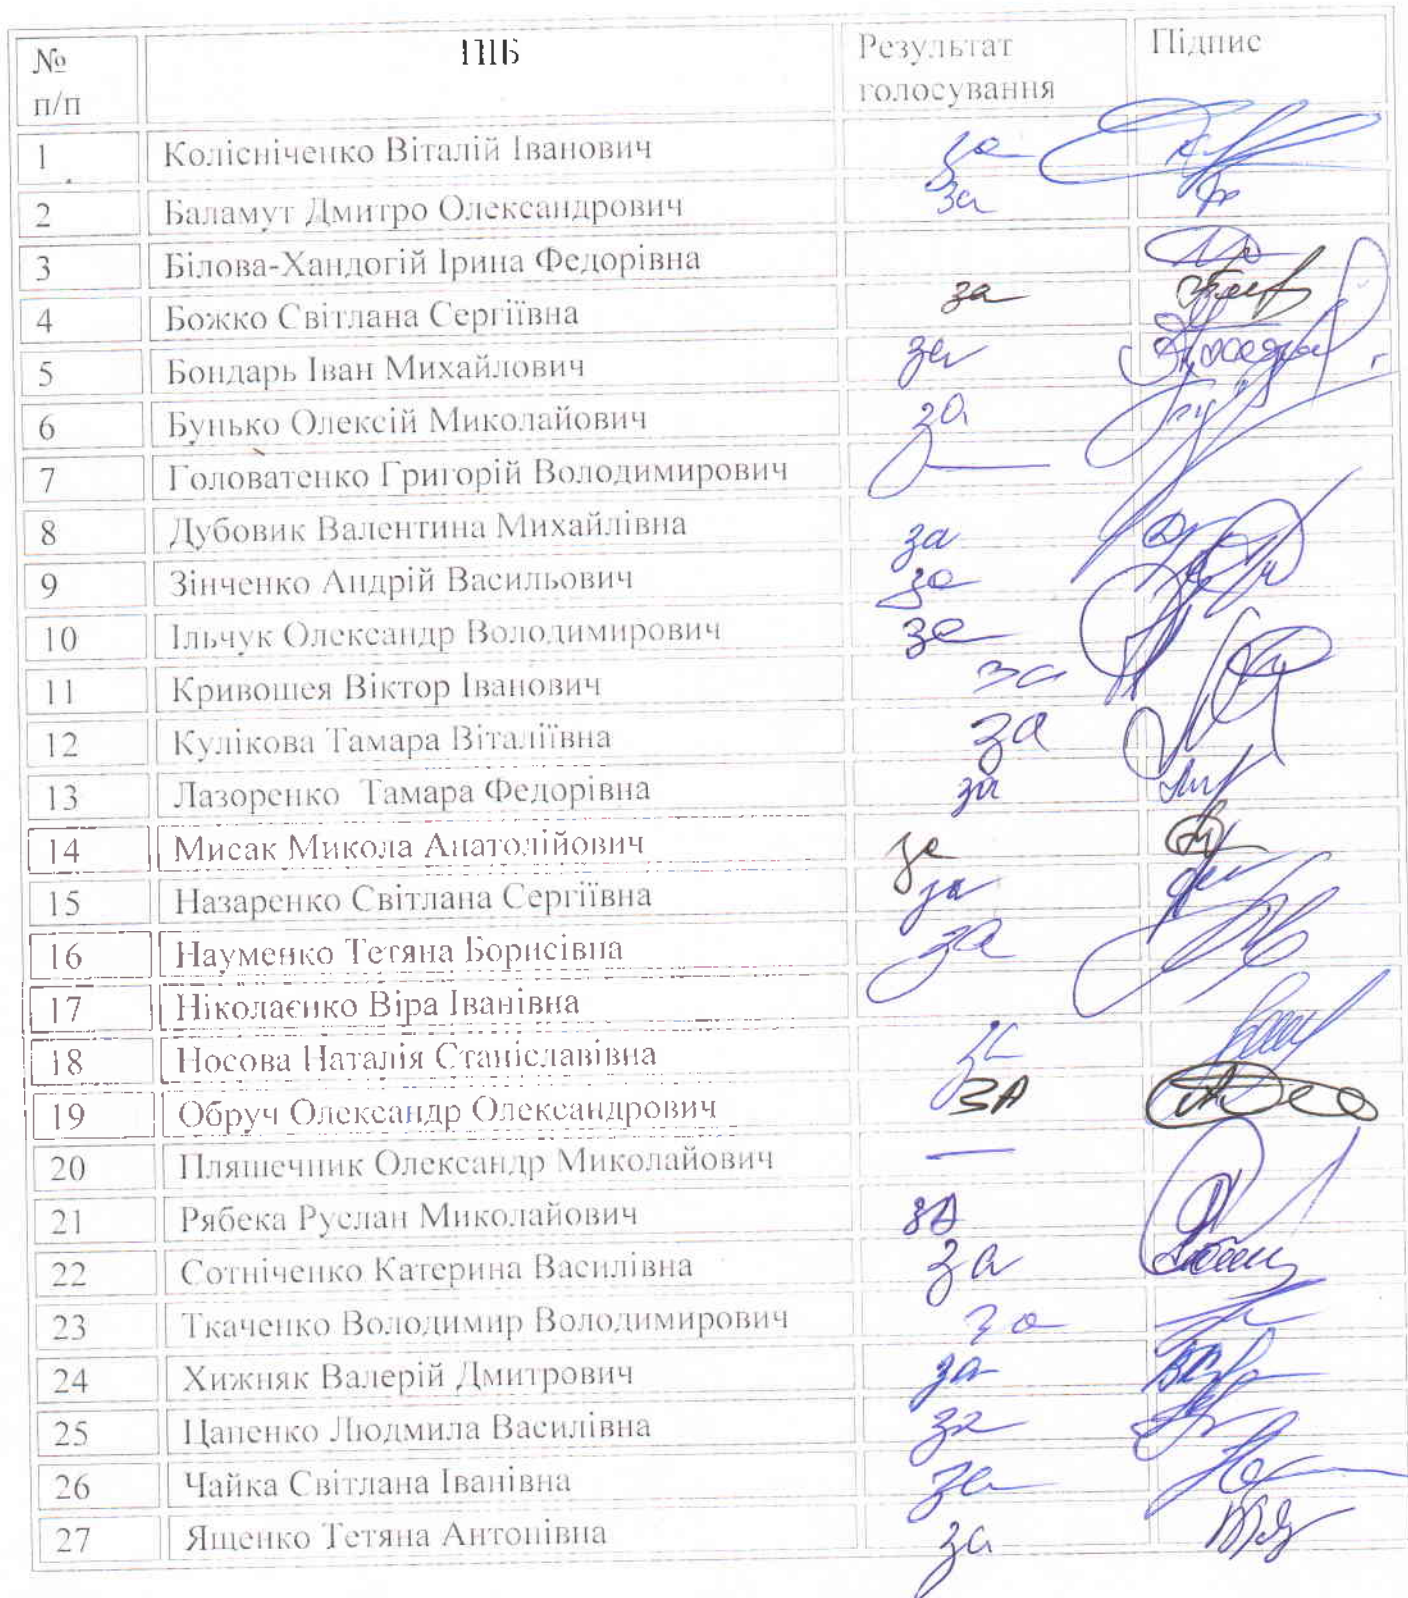 № п/п ПІБ Результат голосування Підпис
1 Колісніченко Віталій Іванович за
2 Баламут Дмитро Олександрович за
3 Білова-Хандогій Ірина Федорівна
4 Божко Світлана Сергіївна за
5 Бондарь Іван Михайлович за
6 Бунько Олексій Миколайович за
7 Головатенко Григорій Володимирович —
8 Дубовик Валентина Михайлівна за
9 Зінченко Андрій Васильович за
10 Ільчук Олександр Володимирович за
11 Кривошея Віктор Іванович за
12 Кулікова Тамара Віталіївна за
13 Лазоренко Тамара Федорівна за
14 Мисак Микола Анатолійович за
15 Назаренко Світлана Сергіївна за
16 Науменко Тетяна Борисівна за
17 Ніколаєнко Віра Іванівна
18 Носова Наталія Станіславівна за
19 Обруч Олександр Олександрович ЗА
20 Пляшечник Олександр Миколайович —
21 Рябека Руслан Миколайович ЗА
22 Сотніченко Катерина Василівна за
23 Ткаченко Володимир Володимирович за
24 Хижняк Валерій Дмитрович за
25 Цапенко Людмила Василівна за
26 Чайка Світлана Іванівна за
27 Ященко Тетяна Антонівна за